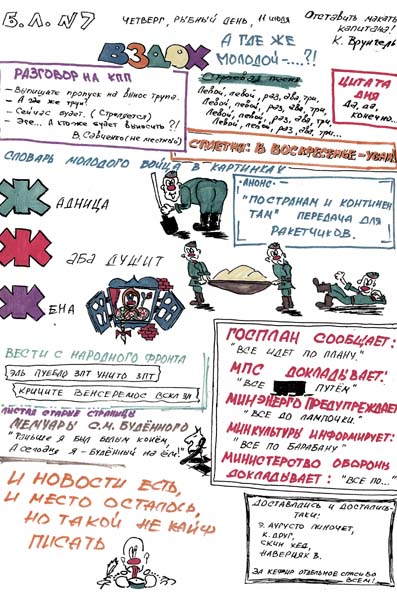 Б.Л. N7
ЧЕТВЕРГ, РЫБНЫЙ ДЕНЬ, 11 ИЮЛЯ
Отставить макать
капитана!
К. Врунгель
ВЗДОХ
А ГДЕ ЖЕ
МОЛОДОЙ-....?!
РАЗГОВОР НА КПП
- Выпишите пропуск на вынос трупа.
- А где же труп?
- Сейчас будет. (Стреляется)
- Эге... А кто же будет выносить?!
В. Савченко (не местный)
Строевая песня
Левой, левой, раз, два, три,
Левой, левой, раз, два, три,
Левой, левой, раз, два, три,
Левой, левой, раз, два, три...
ЦИТАТА
ДНЯ
Да, да,
конечно...
СПЛЕТНЯ: В ВОСКРЕСЕНЬЕ -
СЛОВАРЬ МОЛОДОГО БОЙЦА В КАРТИНКАХ
АДНИЦА
АБА ДУШИТ
ЕНА
-АНОНС-
"ПОСТРАНАМ И КОНТИНЕН
ТАМ" ПЕРЕДАЧА ДЛЯ
РАКЕТЧИКОВ.
ВЕСТИ С НАРОДНОГО ФРОНТА
ЭЛЬ ПУЕБЛО ЗПТ УНИТО ЗПТ
КРИЧИТЕ ВЕНСЕРЕМОС ВСКЛ ЗН
ЛИСТАЯ СТАРЫЕ СТРАНИЦЫ
МЕМУАРЫ С.М. БУДЁННОГО
Я БЫЛ БЕЛЫМ КОНЁМ,
А СЕГОДНЯ Я - БУДЁННЫЙ НА ЁМ!"
ГОСПЛАН СООБЩАЕТ:
"ВСЕ ИДЕТ ПО ПЛАНУ."
МПС ДОКЛАДЫВАЕТ:
"ВСЕ ПУТЁМ"
МИНЭНЕРГО ПРЕДУПРЕЖДАЕТ
"ВСЕ ДО ЛАМПОЧКИ."
МИНКУЛЬТУРЫ ИНФОРМИРУЕТ:
"ВСЕ ПО БАРАБАНУ"
МИНИСТЕРСТВО ОБОРОНЫ
ДОКЛАДЫВАЕТ: "ВСЕ ПО..."
И НОВОСТИ ЕСТЬ,
И МЕСТО ОСТАЛОСЬ,
НО ТАКОЙ НЕ КАЙФ
ПИСАТЬ
ДОСТАВАЛИСЬ И ДОСТАЛИСЬ-
ТАКИ:
Э. АУГУСТО ПИНОЧЕТ,
К. ДРУГ,
СКИН ХЕД,
НАВЕРЦЯХ В.
ЗА КЕФИР ОТДЕЛЬНОЕ СПАСИБО
ВСЕМ!